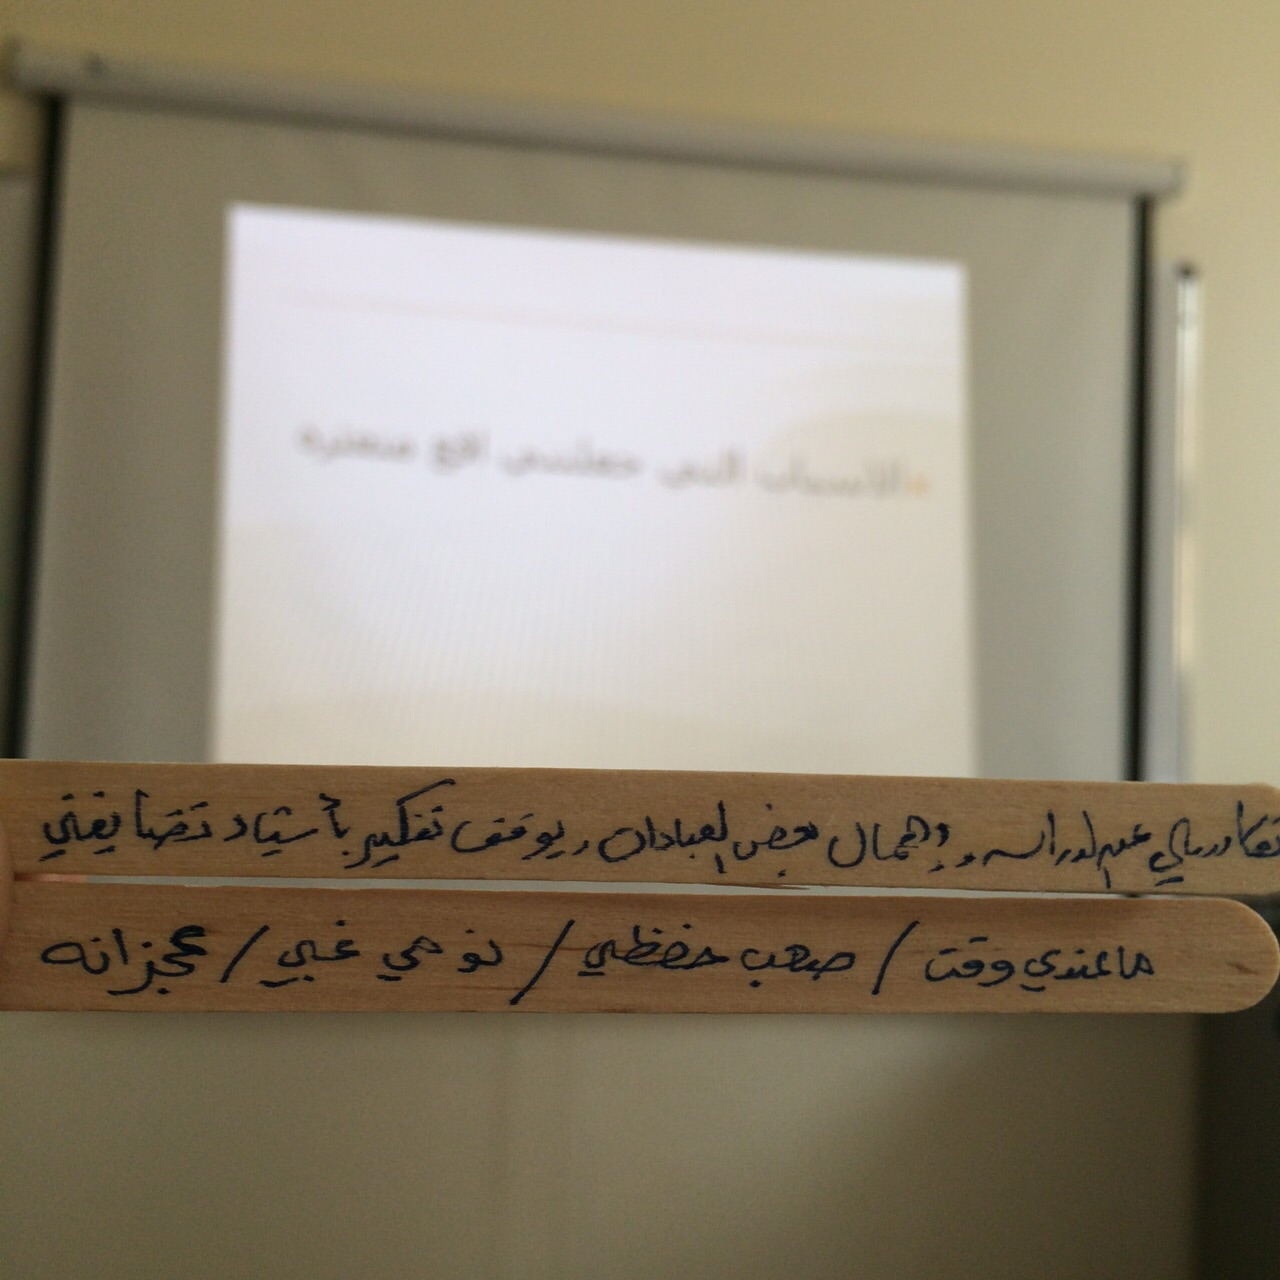 الأسباب التي جعلتني اقع متعثره
عن الدراسه وإهمال بعض العبادات ويوقف تفكير بأشياء تضايقني
ما عندي وقت / صعب حفظي / نومي غبي / عجزانه